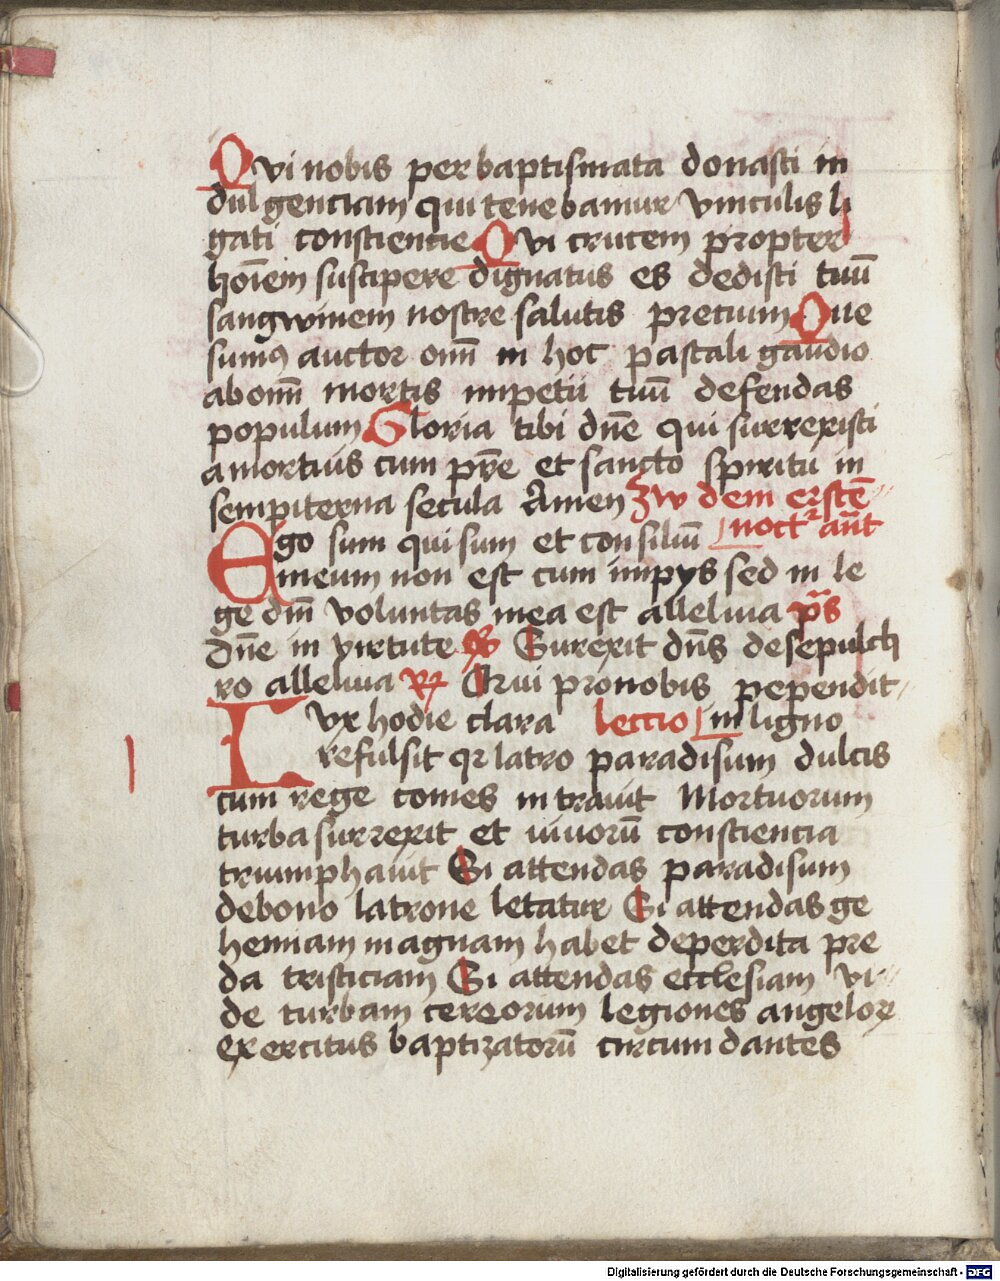 Qvi nobis per baptismata donasti in
dulgenciam qui tenebamur vinculis li
gati consciencie Qvi crucem propter
hoīem suscipere dignatus es dedisti tuū
sangwinem nostre salutis precium Que
sumꝰ auctor oīm in hoc pascali gaudio
ab omī mortis impetu tuū defendas
populum Gloria tibi dn̄e qui surrexisti
a mortuis cum pr̄e et sancto spiritu in
sempiterna secula Amen Zw dem erstē
noctr ant̄
Ego sum qui sum et consiliū
meum non est cum impys sed in le
ge dn̄i voluntas mea est alleluia ps̄
Dn̄e in virtute ℣ Surexit dn̄s de sepulch
ro alleluia ℟ Qui pro nobis pependit
in ligno
Lux hodie clara lectio
refulsit qr latro paradisum dulcis
cum rege comes intrauit Mortuorum
turba surrexit et uiuorū consciencia
triumphauit Si attendas paradisum
de bono latrone letatur Si attendas ge
hennam magnam habet deperdita pre
da tristiciam Si attendas ecclesiam vi
de turbam cereorum legiones angeloꝝ
exercitus baptizatorū circumdantes
Digitalisierung gefördert durch die Deutsche Forschungsgemeinschaft - DFG